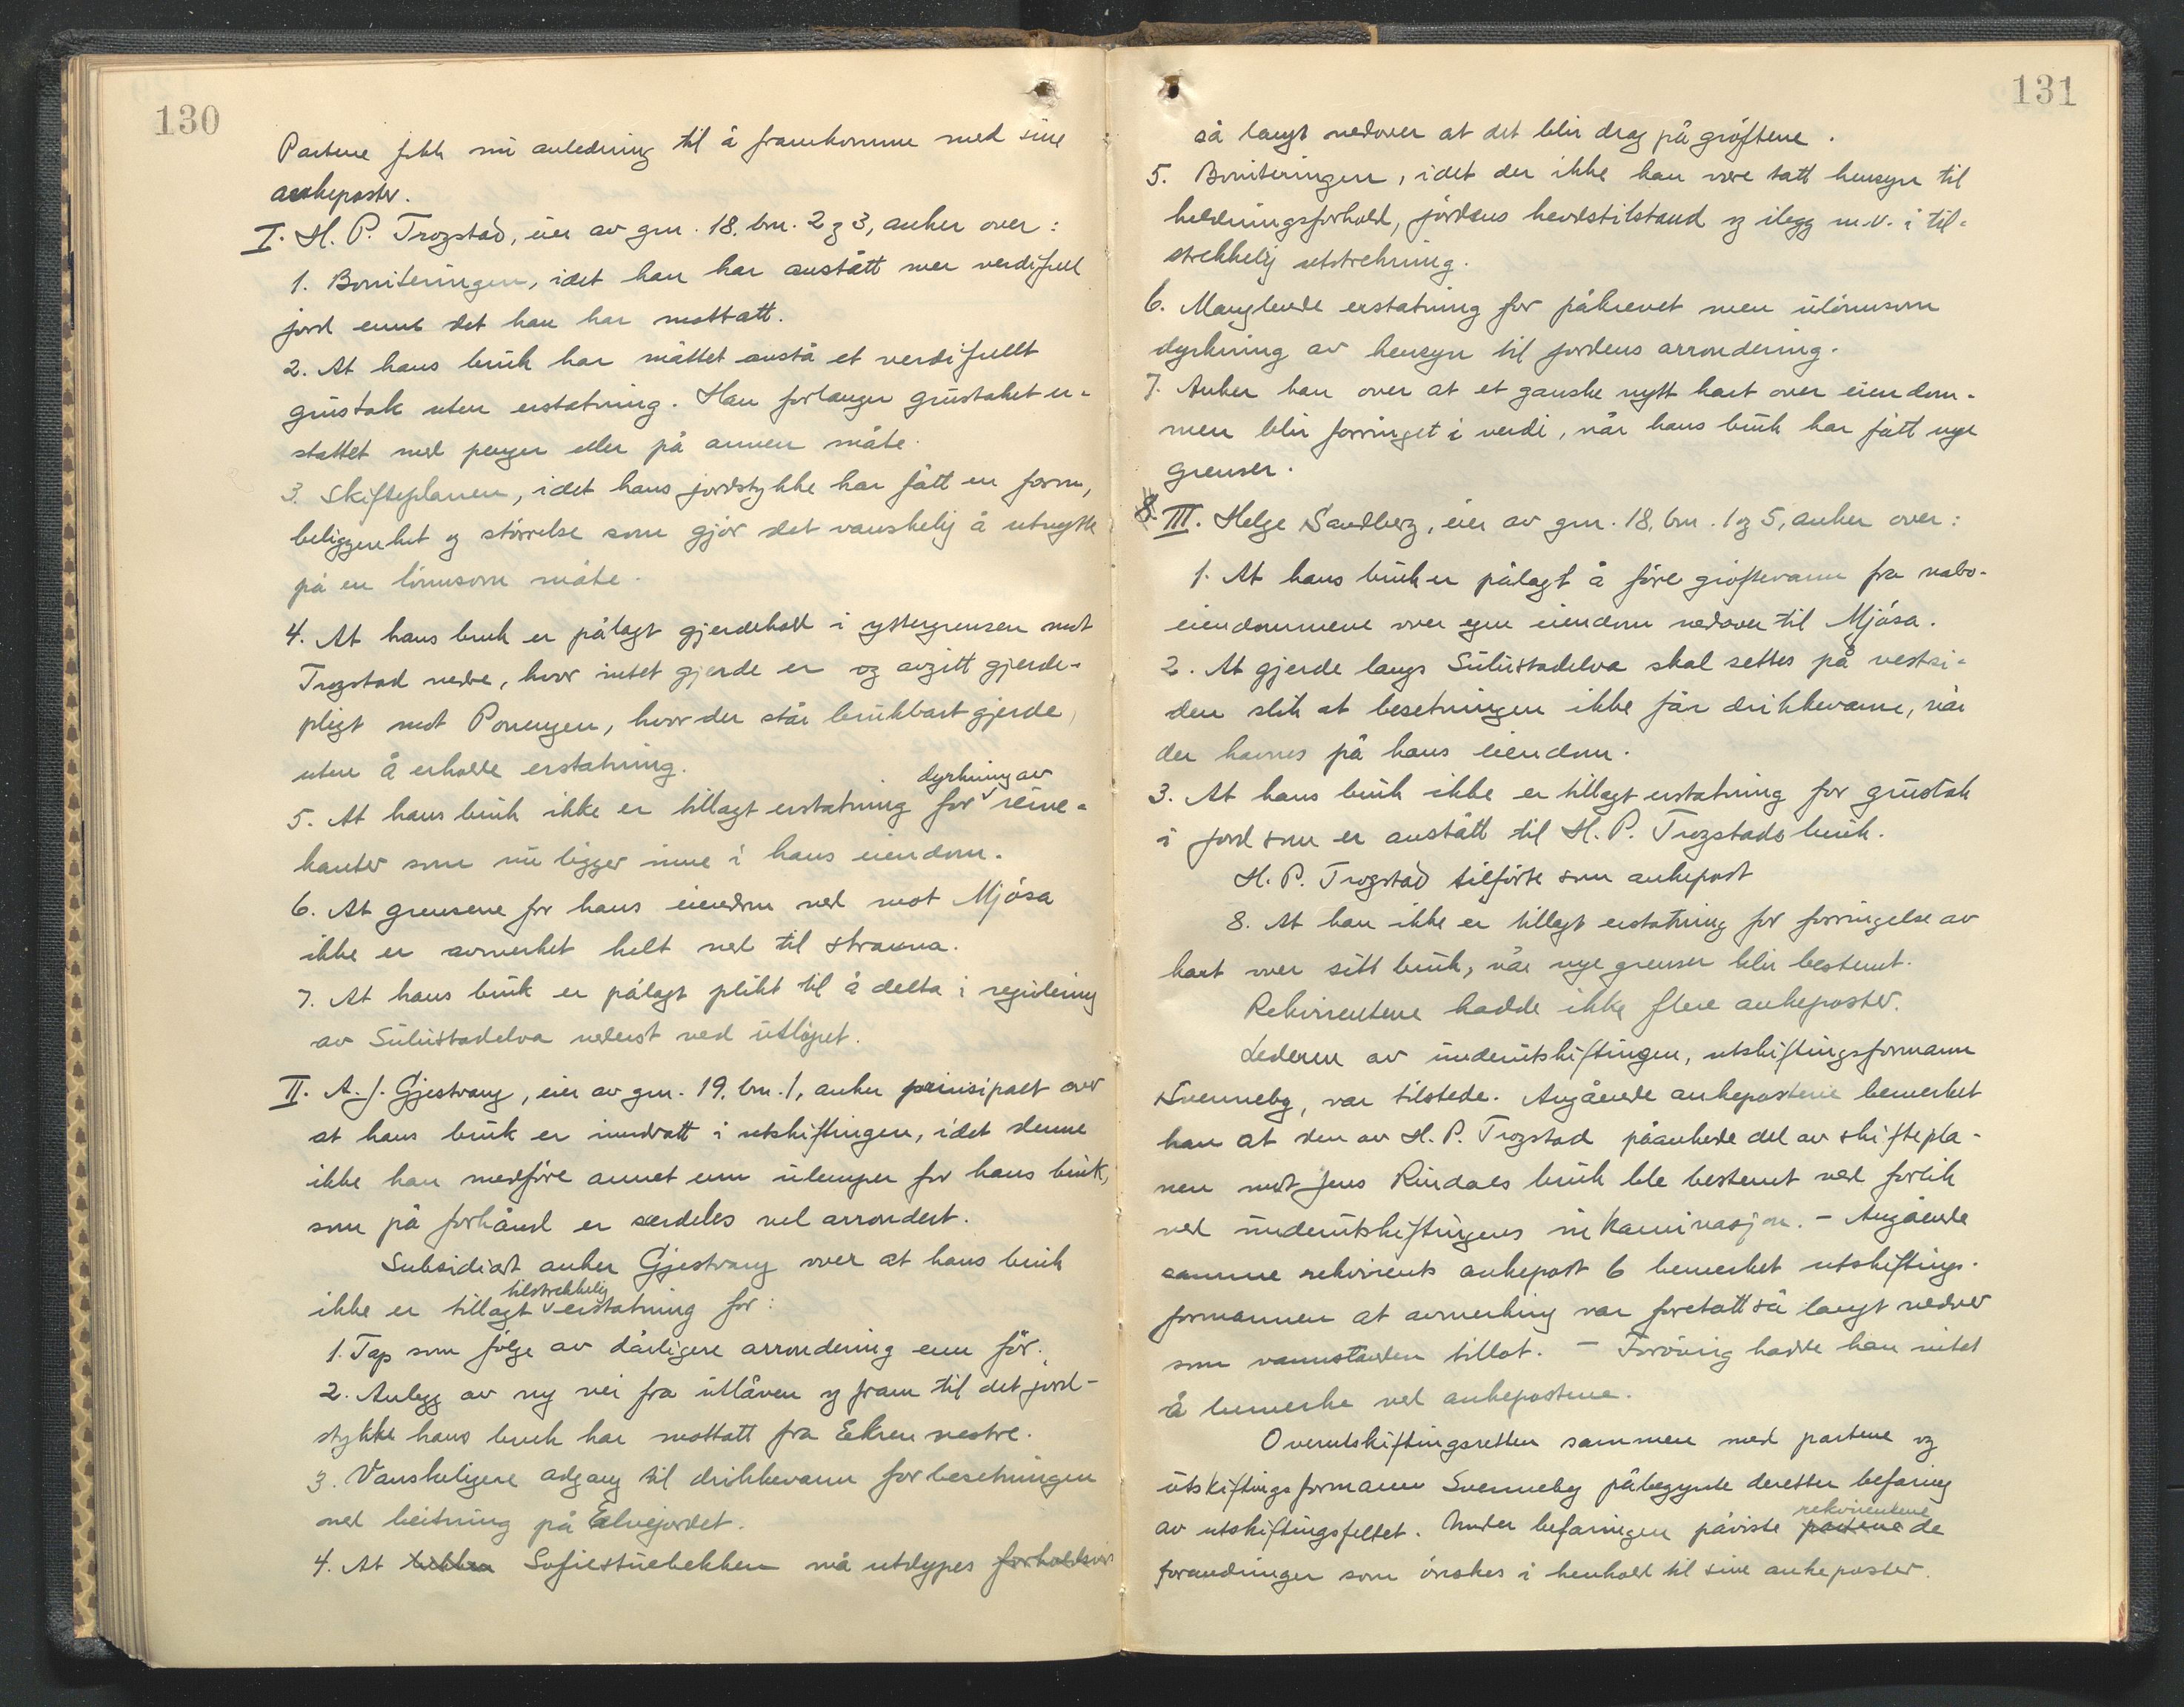 130
Partene fikk nu anledning til å framkomme med sine
ankeposter.
I. H. P. Trogstad, eier av gnr. 18, bnr. 2 og 3, anker over:
1. Boniteringen, idet han har avstått mer verdifull
jord enn det han har mottatt.
2. At hans bruk har måttet avstå et verdifullt
grustak uten erstatning. Han forlanger grustaket er-
stattet med penger eller på annen måte.
3. Skifteplanen, idet hans jordstykke har fått en form,
beliggenhet og størrelse som gjør det vanskelig å utnytte
på en lønnsom måte.
4. At hans bruk er pålagt gjerdehold i yttergrensen mot
Trogstad nedre, hvor intet gjerde er og avgitt gjerde-
pligt mot Porengen, hvor der står brukbart gjerde,
uten å erholde erstatning.
dyrkning av
5. At hans bruk ikke er tillagt erstatning for reine-
kanter som nu ligger inne i hans eiendom.
6. At grensene for hans eiendom ned mot Mjøsa
ikke er avmerket helt ned til stranna.
7. At hans bruk er pålagt plikt til å delta i regulering
av Sulustadelva nederst ved utløpet.
II. A. J. Gjestvang, eier av gnr. 19, bnr. 1, anker prinsipalt over
at hans bruk er inndratt i utskiftingen, idet denne
ikke kan medføre annet enn ulemper for hans bruk,
som på forhånd er særdeles vel arrondert.
Subsidiært anker Gjestvang over at hans bruk
tilstrekkelig
ikke er tillagt erstatning for:
1. Tap som følge av dårligere arrondering enn før.
2. Anlegg av ny vei fra utlåven og fram til det jord-
stykke hans bruk har mottatt fra Ekren vestre.
3. Vanskeligere adgang til drikkevann for besetningen
ved beitning på Elvejordet.
4. At bekken Sofiestuebekken må utdypes forholdsvis
131
så langt nedover at det blir drag på grøftene.
5. Boniteringen, idet der ikke kan være tatt hensyn til
heldningsforhold, jordens hevdstilstand og ilegg m.v. i til-
strekkelig utstrekning.
6. Manglende erstatning for påkrevet men ulønnsom
dyrkning av hensyn til jordens arrondering.
7. Anker han over at et ganske nytt kart over eiendom-
men blir forringet i verdi, når hans bruk har fått nye
grenser.
8. III. Helge Sandberg, eier av gnr. 18, bnr. 1 og 5, anker over:
1. At hans bruk er pålagt å føre grøftevann fra nabo-
eiendommene over egen eiendom nedover til Mjøsa.
2. At gjerde langs Sulustadelva skal settes på vestsi-
den slik at besetningen ikke får drikkevann, når
der havnes på hans eiendom.
3. At hans bruk ikke er tillagt erstatning for grustak
i jord som er avstått til H. P. Trogstads bruk.
H. P. Trogstad tilførte som ankepost
8. At han ikke er tillagt erstatning for forringelse av
kart over sitt bruk, når nye grenser blir bestemt.
Rekvirentene hadde ikke flere ankeposter.
Lederen av underutskiftingen, utskiftingsformann
Svenneby, var tilstede. Angående ankepostene bemerket
han at den av H. P. Trogstad påankede del av skiftepla-
nen mot Jens Rindals bruk ble bestemt ved forlik
ved underutskiftingens inkaminasjon. – Angående
samme rekvirents ankepost 6 bemerket utskiftings-
formannen at avmerking var foretatt så langt nedover
som vannstanden tillot. – Forøvrig hadde han intet
å bemerke ved ankepostene.
Overutskiftingsretten sammen med partene og
utskiftingsformann Svenneby påbegynte deretter befaring
rekvirentene
av utskiftingsfeltet. Under befaringen påviste partene de
forandringer som ønskes i henhold til sine ankeposter.